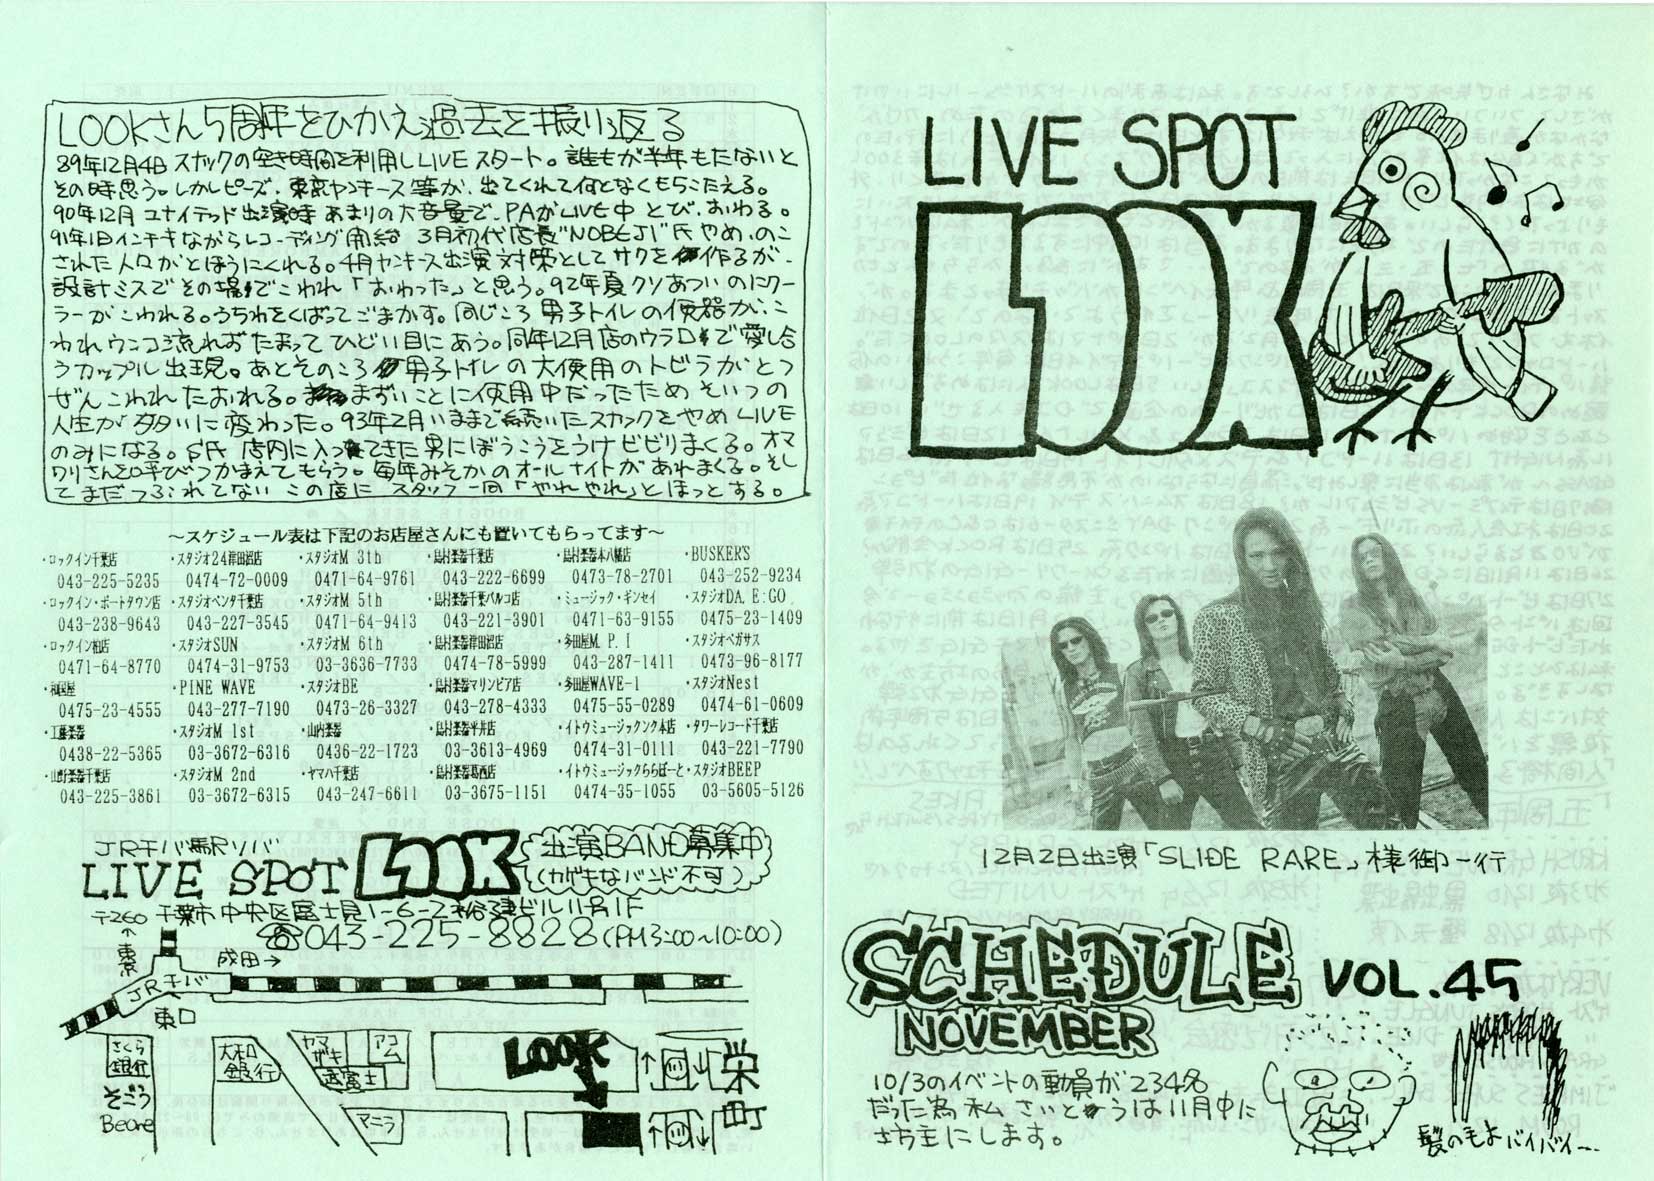 LOOKさん5周年をひかえ過去を振り返る
89年12月4日 スナックの空き時間を利用しLIVEスタート。誰もが半年もたないと
その時思う。しかしピーズ、東京ヤンキース等が、出てくれて何となくもちこたえる。
90年12月 ユナイテッド出演時 あまりの大音量で、PAがLIVE中 とび、おわる。
91年1日インチキながらレコーディング開始 3月初代店長"NOBEJI"氏 やめ、のこ
された人々がとほうにくれる。4月ヤンキース出演対策としてサクを作るが、
設計ミスでその場でこわれ「おわった」と思う。92年夏クソあついのにクー
ラーがこわれる。うちわをくばってごまかす。同じころ 男子トイレの便器が、こ
われウンコ流れずたまってひどい目にあう。同年12月店のウラ口で愛し合
うカップル出現。あとそのころ男子トイレの大使用のトビラがとつ
ぜんこわれたおれる。まずいことに使用中だったためそいつの
人生が多いに変わった。93年2月いままで続いたスナックをやめLIVE
のみになる。S氏 店内に入ってきた男にぼうこうをうけビビりまくる。オマ
ワリさんを呼びつかまえてもらう。毎年みそかのオールナイトがあれまくる。そし
てまだつぶれてない この店に スタッフ一同「やれやれ」とほっとする。
～スケジュール表は下記のお店屋さんにも置いてもらってます～
・ロックイン千葉店 ・スタジオ24津田沼店 ・スタジオM 3th ・島村楽器千葉店 ・島村楽器本八幡店 ・BUSKER'S
043-225-5235 0474-72-0009 0471-64-9761 043-222-6699 0473-78-2701 043-252-9234
・ロックイン・ポートタウン店 ・スタジオペンタ千葉店 ・スタジオM 5th ・島村楽器千葉パルコ店 ・ミュージック・ギンセイ ・スタジオDA, E:GO
043-238-9643 043-227-3545 0471-64-9413 043-221-3901 0471-63-9155 0475-23-1409
・ロックイン柏店 ・スタジオSUN ・スタジオM 6th ・島村楽器津田沼店 ・多田屋M. P. I ・スタジオペガサス
0471-64-8770 0474-31-9753 03-3636-7733 0474-78-5999 043-287-1411 0473-96-8177
・PINE WAVE ・スタジオBE ・島村楽器マリンピア店 ・多田屋WAVE-1 ・スタジオNest
0475-23-4555 043-277-7190 0473-26-3327 043-278-4333 0475-55-0289 0474-61-0609
・工藤楽器 ・スタジオM 1st ・山村楽器 ・島村楽器平井店 ・イトウミュージックンク本店 ・タワーレコード千葉店
0438-22-5365 03-3672-6316 0436-22-1723 03-3613-4969 0474-31-0111 043-221-7790
・山野楽器千葉店 ・スタジオM 2nd ・ヤマハ千葉店 ・島村楽器葛西店 ・イトウミュージックららぽーと ・スタジオBEEP
043-225-3861 03-3672-6315 043-247-6611 03-3675-1151 0474-35-1055 03-5605-5126
JRチバ駅ソバ
LIVE SPOT LOOK
出演BAND募集中
(カゲキなバンド不可)
〒260 千葉市中央区富士見1-6-2 谷建ビル11号1F
☎043-225-8828(PM3:00～10:00)
↑東京
成田→
JRチバ
東口
さくら
銀行
そごう
BeOne
大和
銀行
ヤマ
ザキ
アコ
ム
武富士
マニラ
LOOK
栄
町
LIVE SPOT
LOOK
12月2日出演「SLIDE RARE」様御一行
SCHEDULE VOL.45
NOVEMBER
10/3のイベントの動員が234名
だった為 私 さいとうは11月中に
坊主にします。
髪の毛よバイバイー…